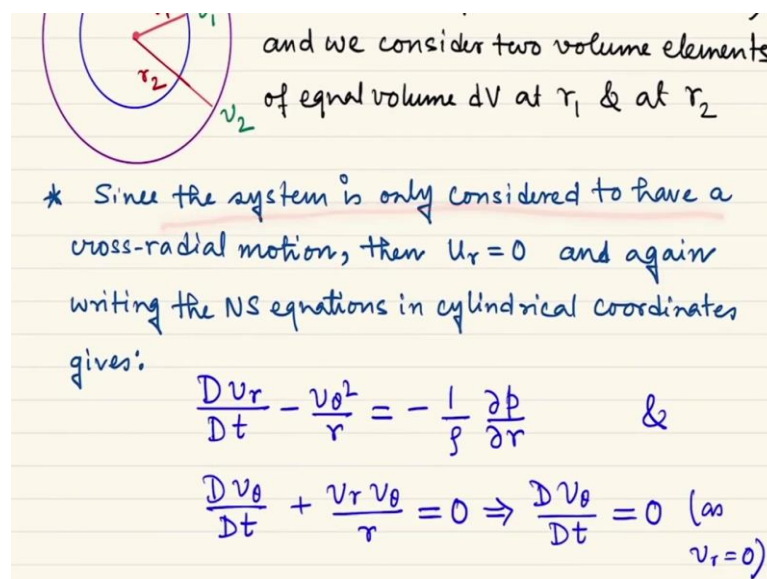 v₁
r₂
v₂
and we consider two volume elements
of equal volume dV at r₁ & at r₂
* Since the system is only considered to have a
cross-radial motion, then Uᵣ = 0 and again
writing the NS equations in cylindrical coordinates
gives:
Dvᵣ/Dt - v_θ²/r = - 1/ρ ∂p/∂r &
Dv_θ/Dt + vᵣ v_θ/r = 0 ⇒ Dv_θ/Dt = 0 (as
vᵣ = 0)